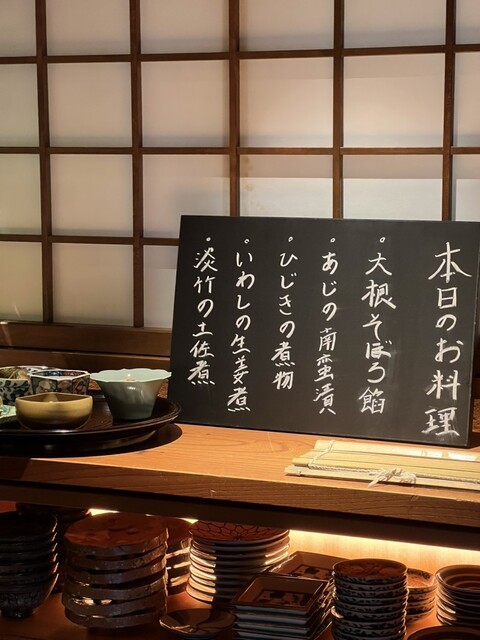 本日のお料理
。大根そぼろ餡
。あじの南蛮漬
。ひじきの煮物
。いわしの生姜煮
。淡竹の土佐煮